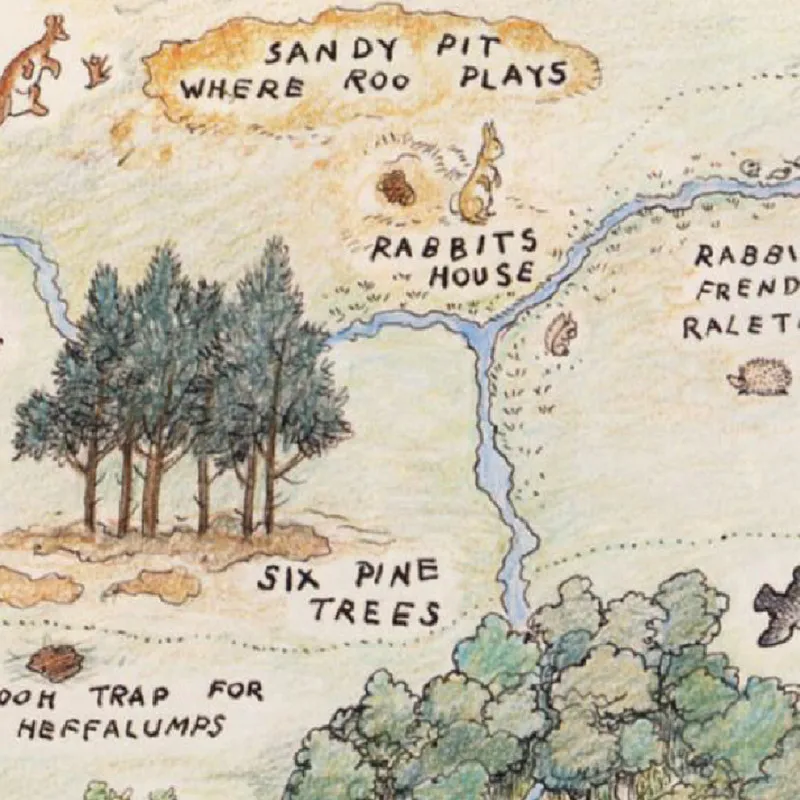 SANDY PIT
WHERE ROO PLAYS
RABBITS
HOUSE
FREND
SIX PINE
TREES
TRAP FOR
HEFFALUMPS